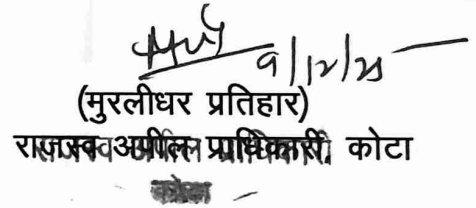 9/12/25
(मुरलीधर प्रतिहार)
राजस्व अपील प्राधिकारी, कोटा